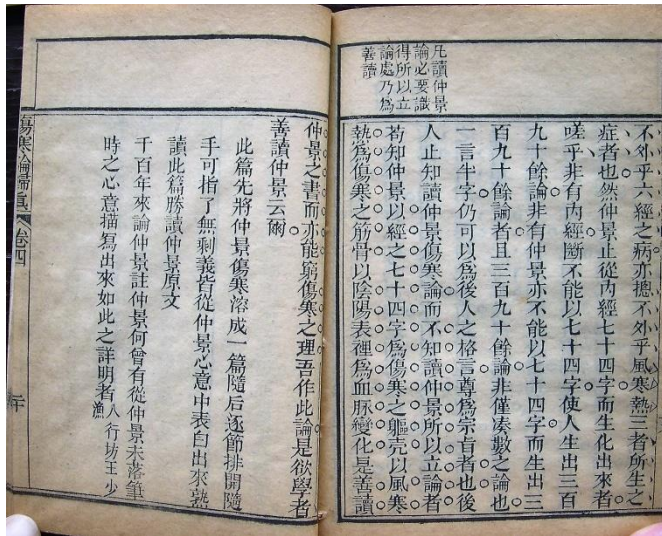 凡讀仲景
論必要識
得所以立
論處乃爲
善讀
不外乎六經之病亦總不外乎風寒熱三者所生之
症者也然仲景止從內經七十四字而生化出來者
嗟乎非有內經斷不能以七十四字使人生出三百
九十餘論非有仲景亦不能以七十四字而生出三
百九十餘論者且三百九十餘論非僅湊數之論也
一言半字仍可以爲後人之格言尊爲宗旨者也後
人止知讀仲景傷寒論而不知讀仲景所以立論者
苟知仲景以經之七十四字爲傷寒之軀壳以風寒
熱爲傷寒之筋骨以陰陽表裡爲血脉變化是善讀
仲景之書而亦能窮傷寒之理吾作此論是欲學者
善讀仲景云爾
此篇先將仲景傷寒溶成一篇隨后逐節排開隨
手可指了無剩義皆從仲景心意中表白出來熟
讀此篇勝讀仲景原文
千百年來論仲景註仲景何曾有從仲景未落筆
時之心意描寫出來如此之詳明者漁人行坊王少
傷寒論歸真
卷四
二十